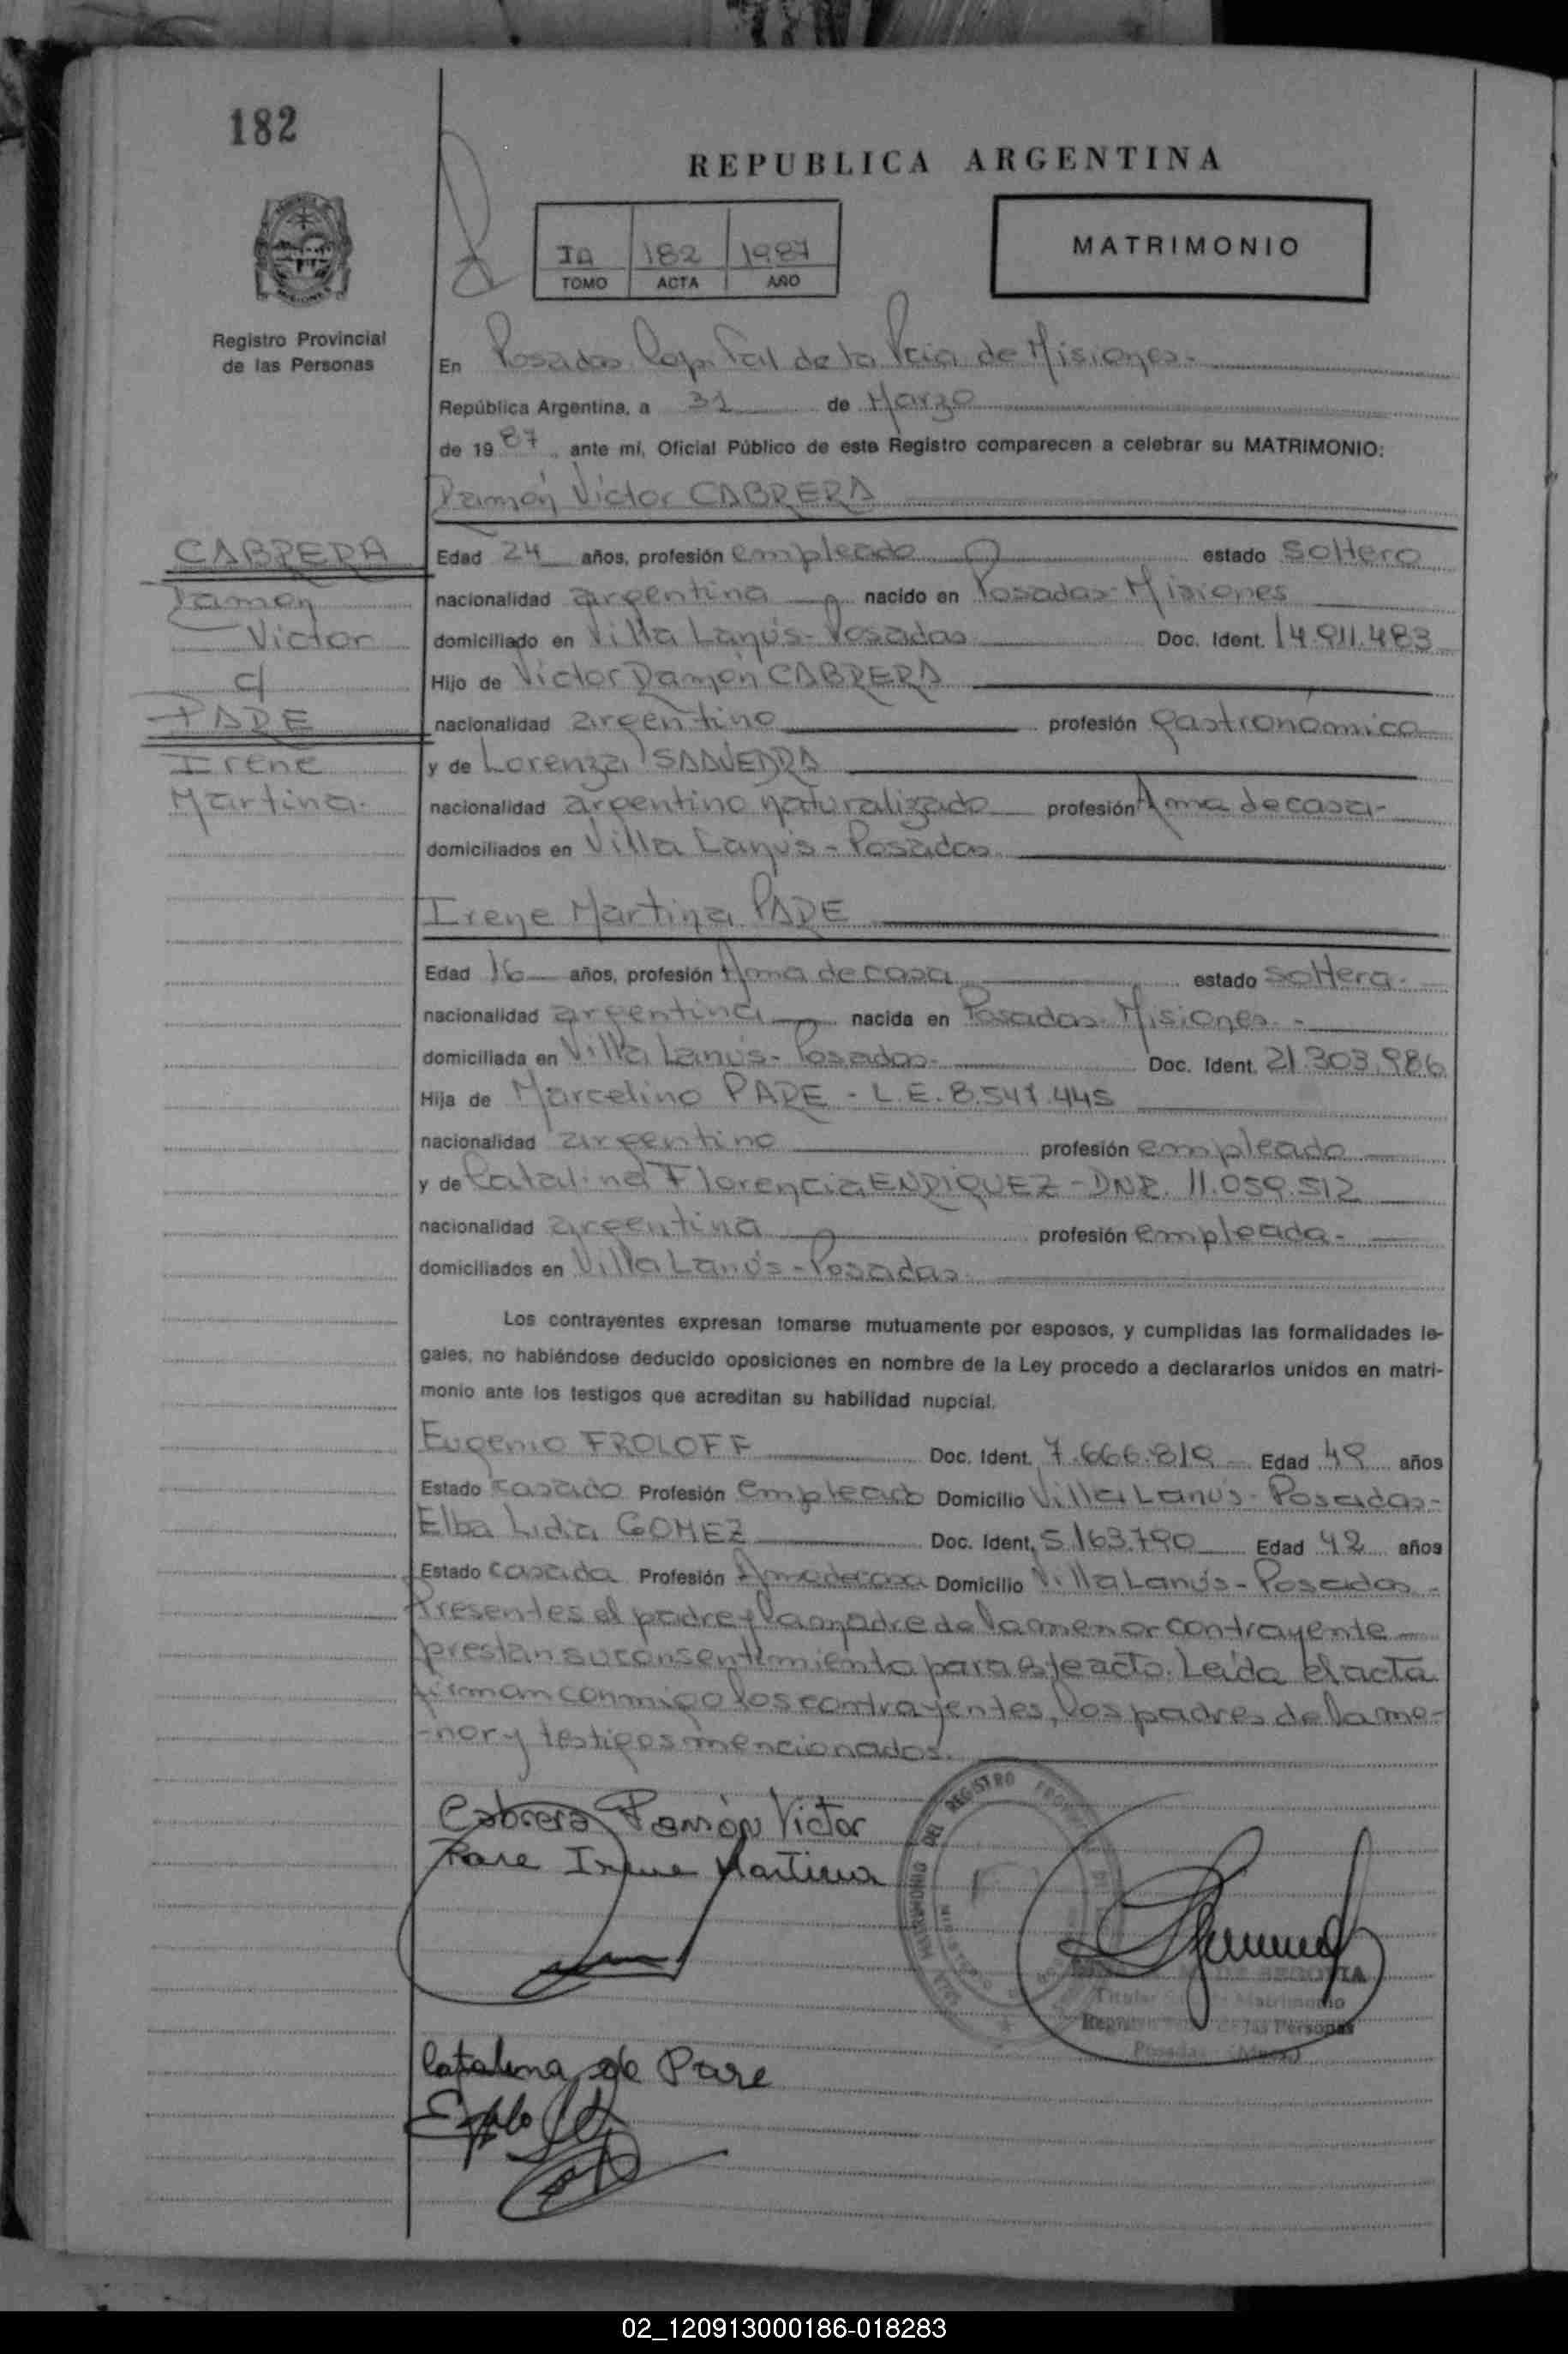 182
REPUBLICA ARGENTINA
IA 182 1987
TOMO ACTA AÑO
MATRIMONIO
Registro Provincial
de las Personas
En Posadas Capital de la Pcia de Misiones.-
República Argentina, a 31 de Marzo
de 1987, ante mí, Oficial Público de este Registro comparecen a celebrar su MATRIMONIO:
Ramón Víctor CABRERA
CABRERA
Ramón
Víctor
c/
PARE
Irene
Martina.
Edad 24 años, profesión empleado estado soltero
nacionalidad argentina nacido en Posadas-Misiones
domiciliado en Villa Lanús-Posadas Doc. Ident. 14.911.483
Hijo de Víctor Ramón CABRERA
nacionalidad argentino profesión gastronómico
y de Lorenza SAAVEDRA
nacionalidad argentino naturalizado profesión Ama de casa-
domiciliados en Villa Lanús-Posadas
Irene Martina PARE
Edad 16 años, profesión Ama de casa estado soltera.
nacionalidad argentina nacida en Posadas-Misiones.-
domiciliada en Villa Lanús-Posadas- Doc. Ident. 21.303.986
Hija de Marcelino PARE - L.E. 8.547.445
nacionalidad argentino profesión empleado
y de Catalina Florencia ENRIQUEZ - DNI. 11.059.512
nacionalidad argentina profesión empleada.-
domiciliados en Villa Lanús-Posadas
Los contrayentes expresan tomarse mutuamente por esposos, y cumplidas las formalidades le-
gales, no habiéndose deducido oposiciones en nombre de la Ley procedo a declararlos unidos en matri-
monio ante los testigos que acreditan su habilidad nupcial.
Eugenio FROLOFF Doc. Ident. 7.666.819 Edad 49 años
Estado casado Profesión empleado Domicilio Villa Lanús-Posadas-
Elba Lidia GOMEZ Doc. Ident. 5.163.790 Edad 42 años
Estado casada Profesión Ama de casa Domicilio Villa Lanús-Posadas-
Presentes el padre y la madre de la menor contrayente
prestan su consentimiento para este acto. Leída el acta
firman conmigo los contrayentes, los padres de la me-
-nor y testigos mencionados.
Cabrera Ramón Victor
Pare Irene Martina
DEL REGISTRO
MATRIMONIO
SEGOVIA
Titular Matrimonio
Registro de las Personas
Posadas
Catalina de Pare
02_120913000186-018283